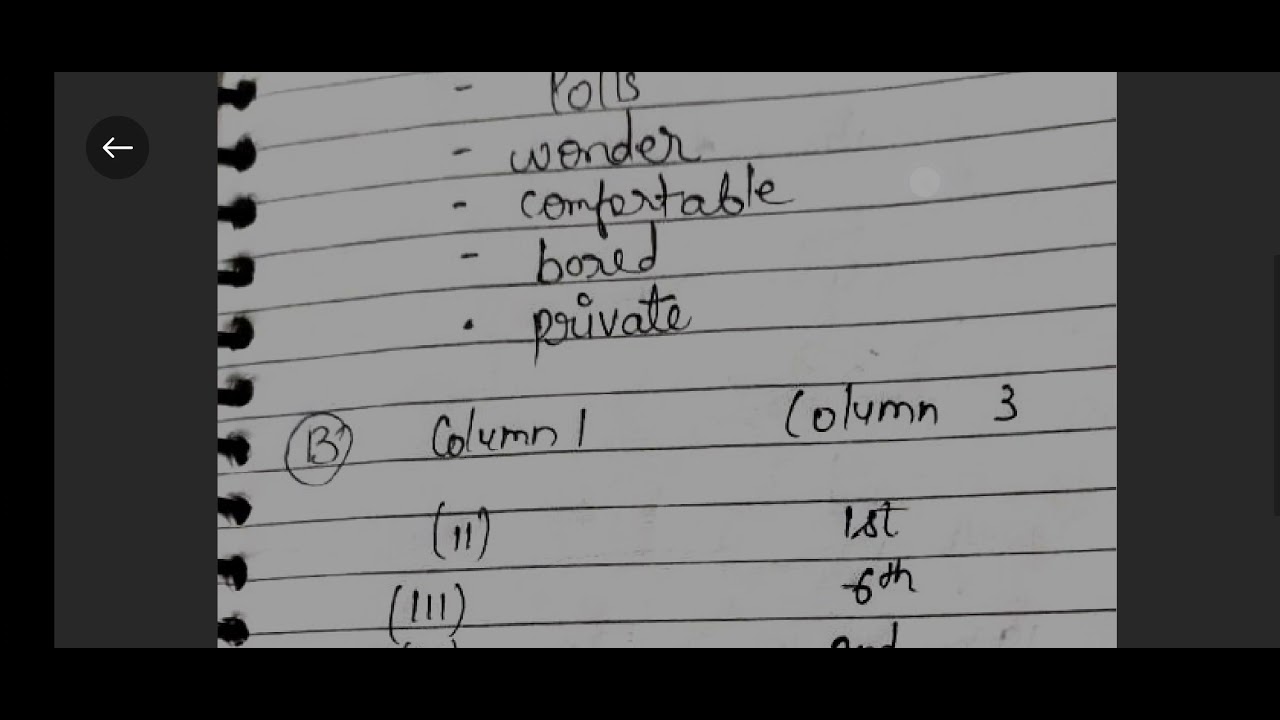 - Polls
- wonder
- comfortable
- bored
• private
B Column 1 Column 3
(II) 1st
(III) 6th